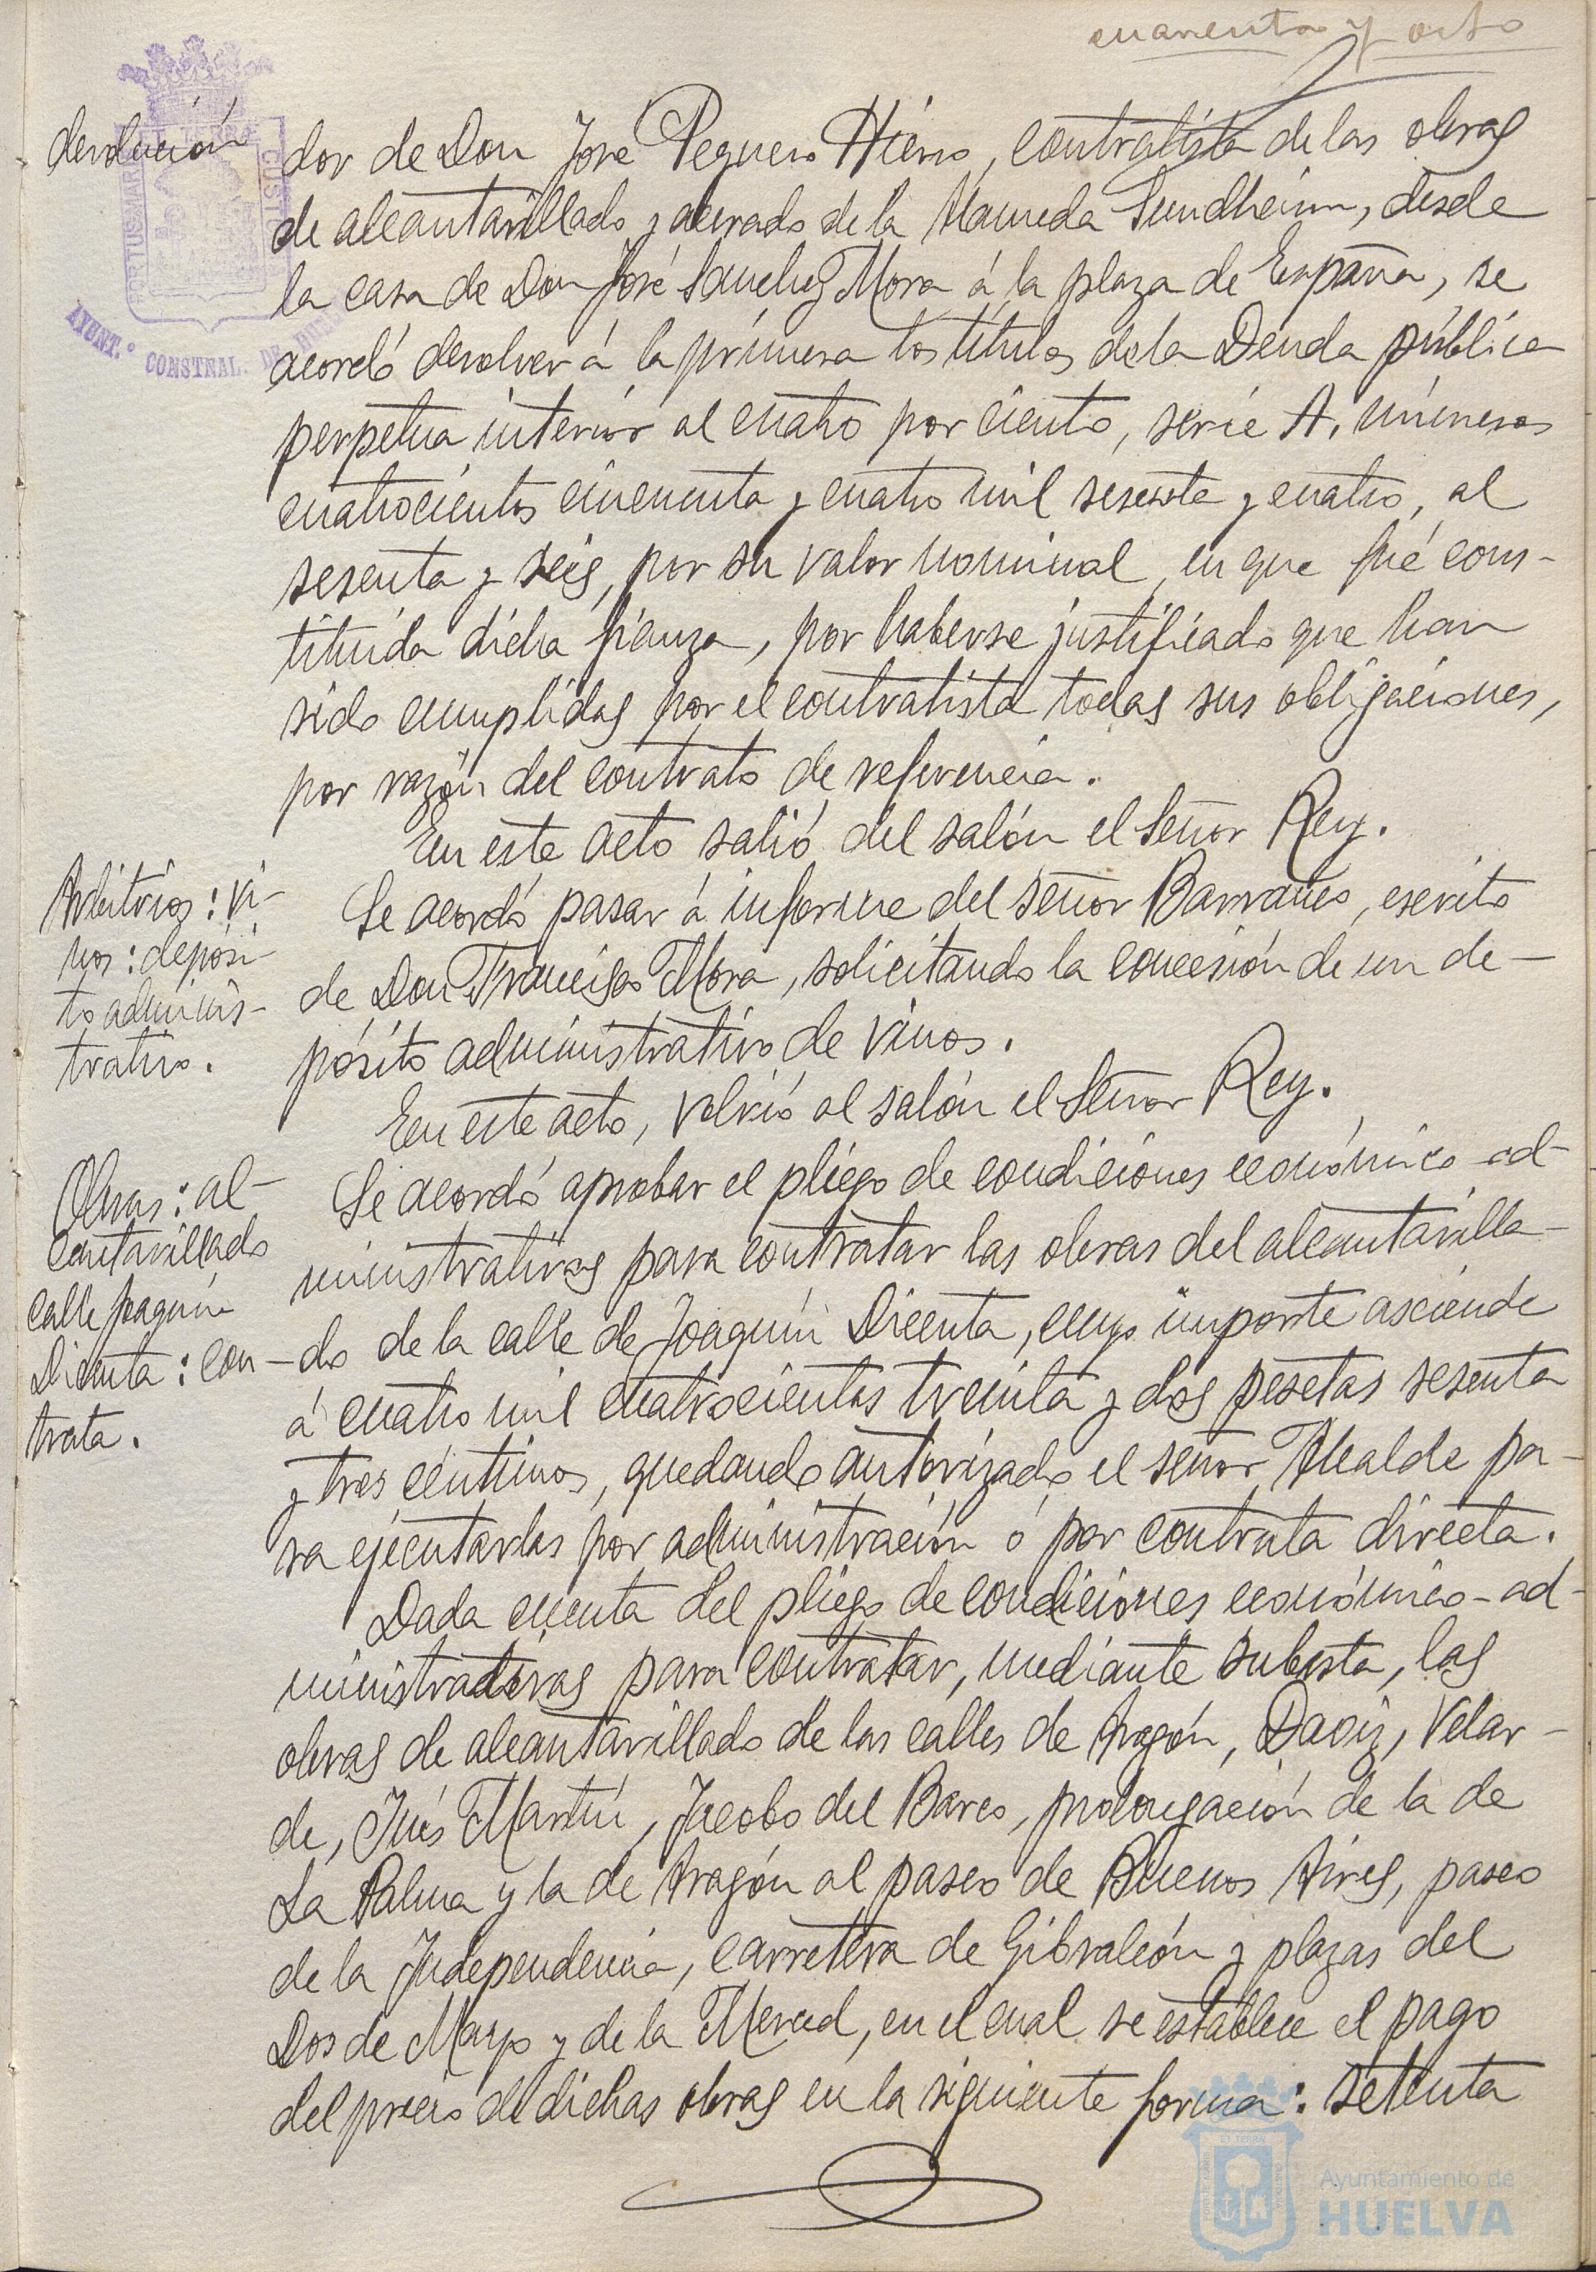 cuarenta y ocho
devolución
dor de Don José Peguero Hierro, contratista de las obras
de alcantarillado y acerado de la Alameda Sundheim, desde
la casa de Don José Sanchez Mora á la plaza de España, se
acordó devolver á la primera los títulos de la Deuda pública
perpetua interior al cuatro por ciento, serie A, números
cuatrocientos cincuenta y cuatro mil sesenta y cuatro, al
sesenta y seis, por su valor nominal, en que fué cons-
tituida dicha fianza, por haberse justificado que han
sido cumplidas por el contratista todas sus obligaciones,
por razón del contrato de referencia.
En este acto salió del salón el Señor Rey.
Arbitrios: vi-
nos: depósi-
to adminis-
trativo.
Se acordó pasar á informe del señor Barranco, escrito
de Don Francisco Mora, solicitando la concesión de un de-
pósito administrativo de vinos.
En este acto, volvió al salón el Señor Rey.
Obras: al-
cantarillado
calle Joaquín
Dicenta: con-
trata.
Se acordó aprobar el pliego de condiciones económico-ad-
ministrativas para contratar las obras del alcantarilla-
do de la calle de Joaquín Dicenta, cuyo importe asciende
á cuatro mil cuatrocientas treinta y dos pesetas sesenta
y tres céntimos, quedando autorizado el señor Alcalde pa-
ra ejecutarlas por administración ó por contrata directa.
Dada cuenta del pliego de condiciones económico-ad-
ministrativas para contratar, mediante subasta, las
obras de alcantarillado de las calles de Aragón, Daoiz, Velar-
de, Inés Martín, Jacobo del Barco, prolongación de la de
La Palma y la de Aragón al paseo de Buenos Aires, paseo
de la Independencia, carretera de Gibraleón y plazas del
Dos de Mayo y de la Merced, en el cual se establece el pago
del precio de dichas obras en la siguiente forma: setenta
PORTUS MARIS ET TERRÆ CUSTODIA
AYUNT.º CONSTNAL. DE HUELVA
Ayuntamiento de
HUELVA